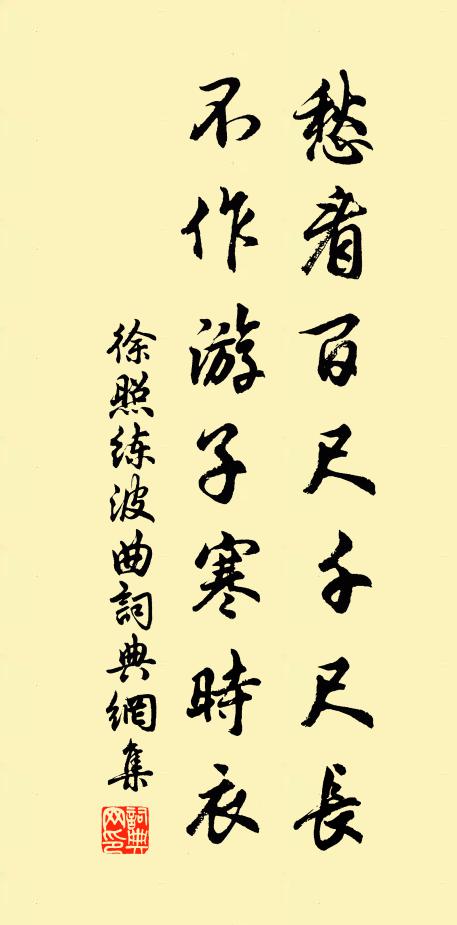 愁看百尺千尺長
不作游子寒時衣
徐照练波曲詞典網集
詞典网印